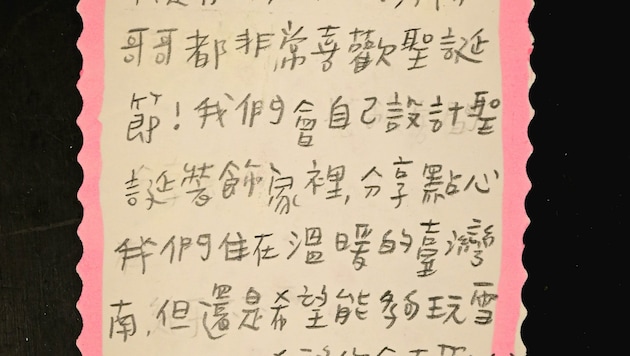 哥哥都非常喜歡聖誕
節!我們會自己設計聖
誕裝飾家裡,分享點心
我們住在溫暖的臺灣
南,但還是希望能夠玩雪